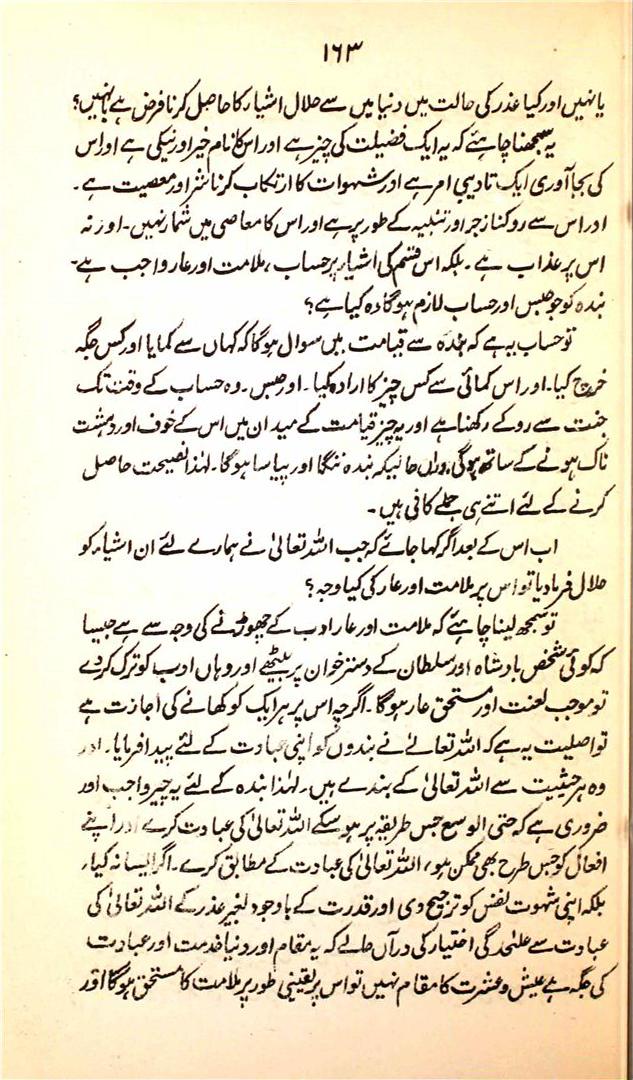 ۱۶۳
یا نہیں اور کیا عذر کی حالت میں دنیا میں سے حلال اشیاء کا حاصل کرنا فرض ہے یا نہیں؟
یہ سمجھنا چاہئے کہ یہ ایک فضیلت کی چیز ہے اور اس کا نام خیر اور نیکی ہے اور اس
کی بجا آوری ایک تادیبی امر ہے اور شہوات کا ارتکاب کرنا شر اور معصیت ہے۔
اور اس سے روکنا زجر اور تنبیہ کے طور پر ہے اور اس کا معاصی میں شمار نہیں۔ اور نہ
اس پر عذاب ہے۔ بلکہ اس قسم کی اشیاء پر حساب، ملامت اور عار واجب ہے۔
بندہ کو جو حبس اور حساب لازم ہوگا وہ کیا ہے؟
تو حساب یہ ہے کہ بندہ سے قیامت میں سوال ہوگا کہ کہاں سے کمایا اور کس جگہ
خرچ کیا۔ اور اس کمائی سے کس چیز کا ارادہ کیا۔ اور حبس۔ وہ حساب کے وقت تک
جنت سے روکے رکھنا ہے اور یہ چیز قیامت کے میدان میں اس کے خوف اور دہشت
ناک ہونے کے ساتھ ہوگی دراں حالیکہ بندہ ننگا اور پیاسا ہوگا۔ لہٰذا نصیحت حاصل
کرنے کے لئے اتنے ہی جملے کافی ہیں۔
اب اس کے بعد اگر کہا جائے کہ جب اللہ تعالیٰ نے ہمارے لئے ان اشیاء کو
حلال فرما دیا تو اس پر ملامت اور عار کی کیا وجہ؟
تو سمجھ لینا چاہئے کہ ملامت اور عار ادب کے چھوڑنے کی وجہ سے ہے جیسا
کہ کوئی شخص بادشاہ اور سلطان کے دسترخوان پر بیٹھے اور وہاں ادب کو ترک کر دے
تو موجب لعنت اور مستحق عار ہوگا۔ اگرچہ اس پر ہر ایک کو کھانے کی اجازت ہے
تو اصلیت یہ ہے کہ اللہ تعالےٰ نے بندوں کو اپنی عبادت کے لئے پیدا فرمایا۔ اور
وہ ہر حیثیت سے اللہ تعالیٰ کے بندے ہیں۔ لہٰذا بندہ کے لئے یہ چیز واجب اور
ضروری ہے کہ حتی الوسع جس طریقہ پر ہو سکے اللہ تعالیٰ کی عبادت کرے اور اپنے
افعال کو جس طرح بھی ممکن ہو، اللہ تعالیٰ کی عبادت کے مطابق کرے۔ اگر ایسا نہ کیا،
بلکہ اپنی شہوت نفس کو ترجیح دی اور قدرت کے باوجود بغیر عذر کے اللہ تعالیٰ کی
عبادت سے علٰحدگی اختیار کی درآں حالے کہ یہ مقام اور دنیا خدمت اور عبادت
کی جگہ ہے عیش و عشرت کا مقام نہیں تو اس پر یقینی طور پر ملامت کا مستحق ہوگا اور